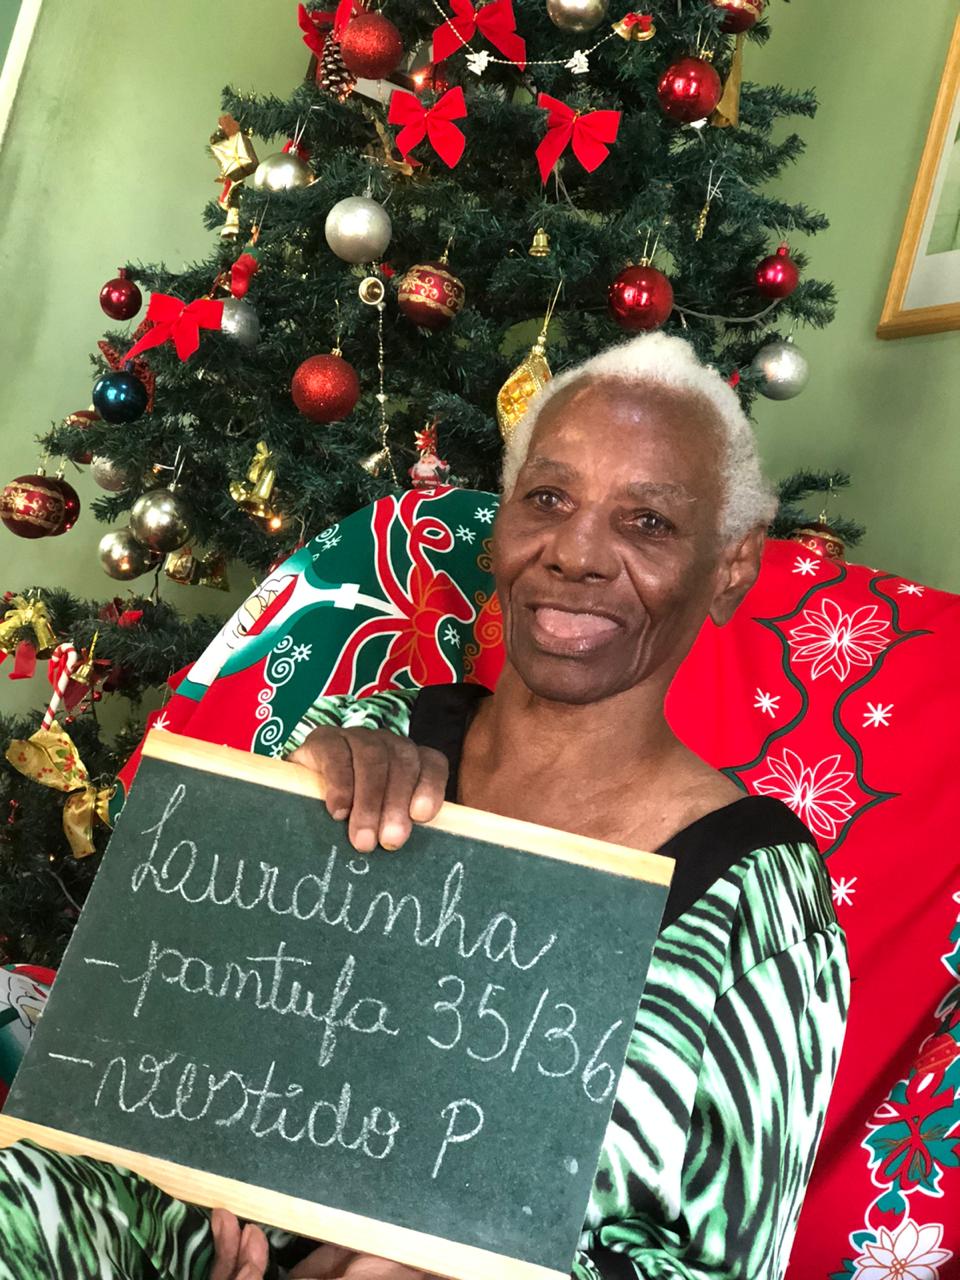 Laurdinha
- pantufa 35/36
- vestido P